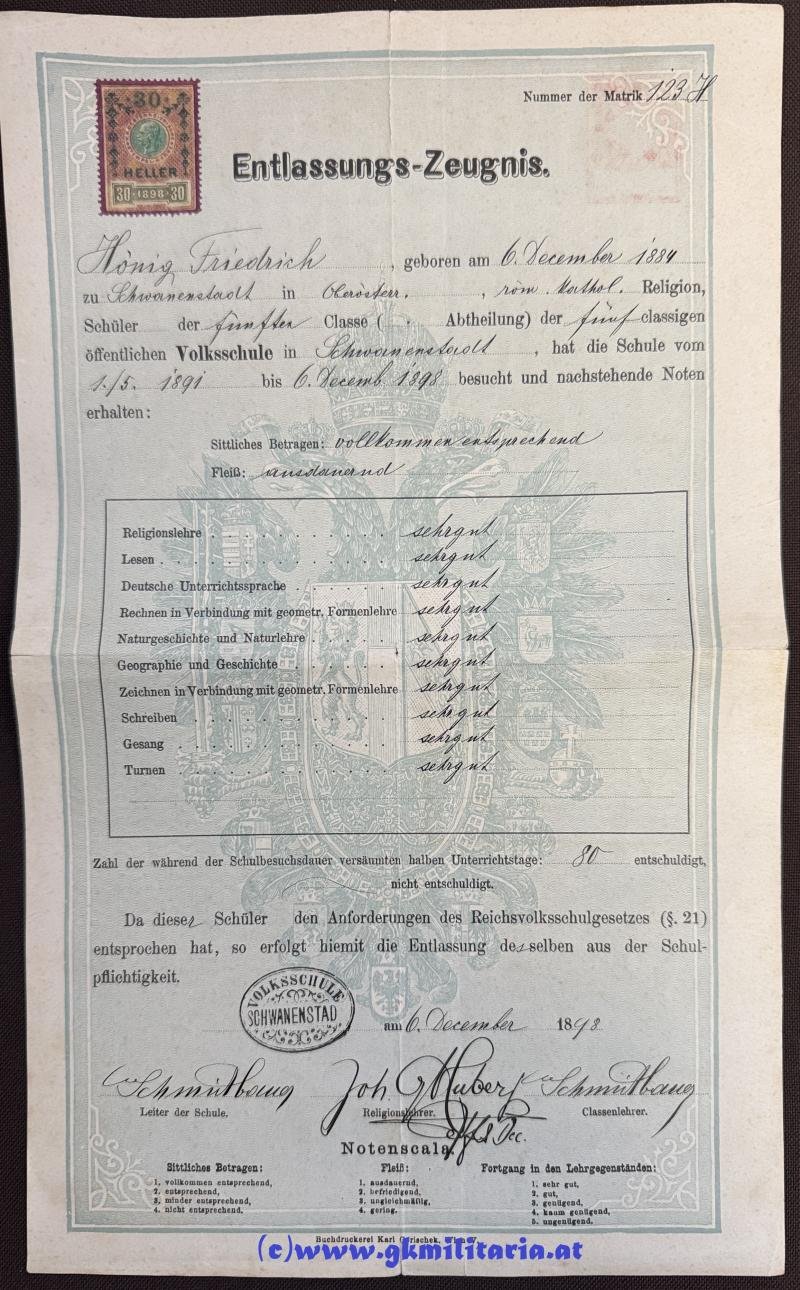 30
HELLER
30 · 1898 · 30
Nummer der Matrik 123 H
Entlassungs-Zeugnis.
Hönig Friedrich, geboren am 6. December 1884
zu Schwanenstadt in Oberösterr., röm. kathol. Religion,
Schüler der fünften Classe ( . Abtheilung) der fünf classigen
öffentlichen Volksschule in Schwanenstadt, hat die Schule vom
1./5. 1891 bis 6. Decemb. 1898 besucht und nachstehende Noten
erhalten:
Sittliches Betragen: vollkommen entsprechend
Fleiß: ausdauernd
Religionslehre . . . . . . . . sehr gut
Lesen . . . . . . . . . sehr gut
Deutsche Unterrichtssprache . . . . sehr gut
Rechnen in Verbindung mit geometr. Formenlehre sehr gut
Naturgeschichte und Naturlehre . . . . sehr gut
Geographie und Geschichte . . . . . sehr gut
Zeichnen in Verbindung mit geometr. Formenlehre sehr gut
Schreiben . . . . . . . . sehr gut
Gesang . . . . . . . . . sehr gut
Turnen . . . . . . . . . sehr gut
Zahl der während der Schulbesuchsdauer versäumten halben Unterrichtstage: 80 entschuldigt,
nicht entschuldigt.
Da dieser Schüler den Anforderungen des Reichsvolksschulgesetzes (§. 21)
entsprochen hat, so erfolgt hiemit die Entlassung desselben aus der Schul-
pflichtigkeit.
VOLKSSCHULE
SCHWANENSTAD
am 6. December 1898.
Joh. Huber
Leiter der Schule. Religionslehrer. Classenlehrer.
Dec.
Notenscala.
Sittliches Betragen: Fleiß: Fortgang in den Lehrgegenständen:
1. vollkommen entsprechend, 1. ausdauernd, 1. sehr gut,
2. entsprechend, 2. befriedigend, 2. gut,
3. minder entsprechend, 3. ungleichmäßig, 3. genügend,
4. nicht entsprechend. 4. gering. 4. kaum genügend,
5. ungenügend.
Buchdruckerei Karl
(c)www.gkmilitaria.at